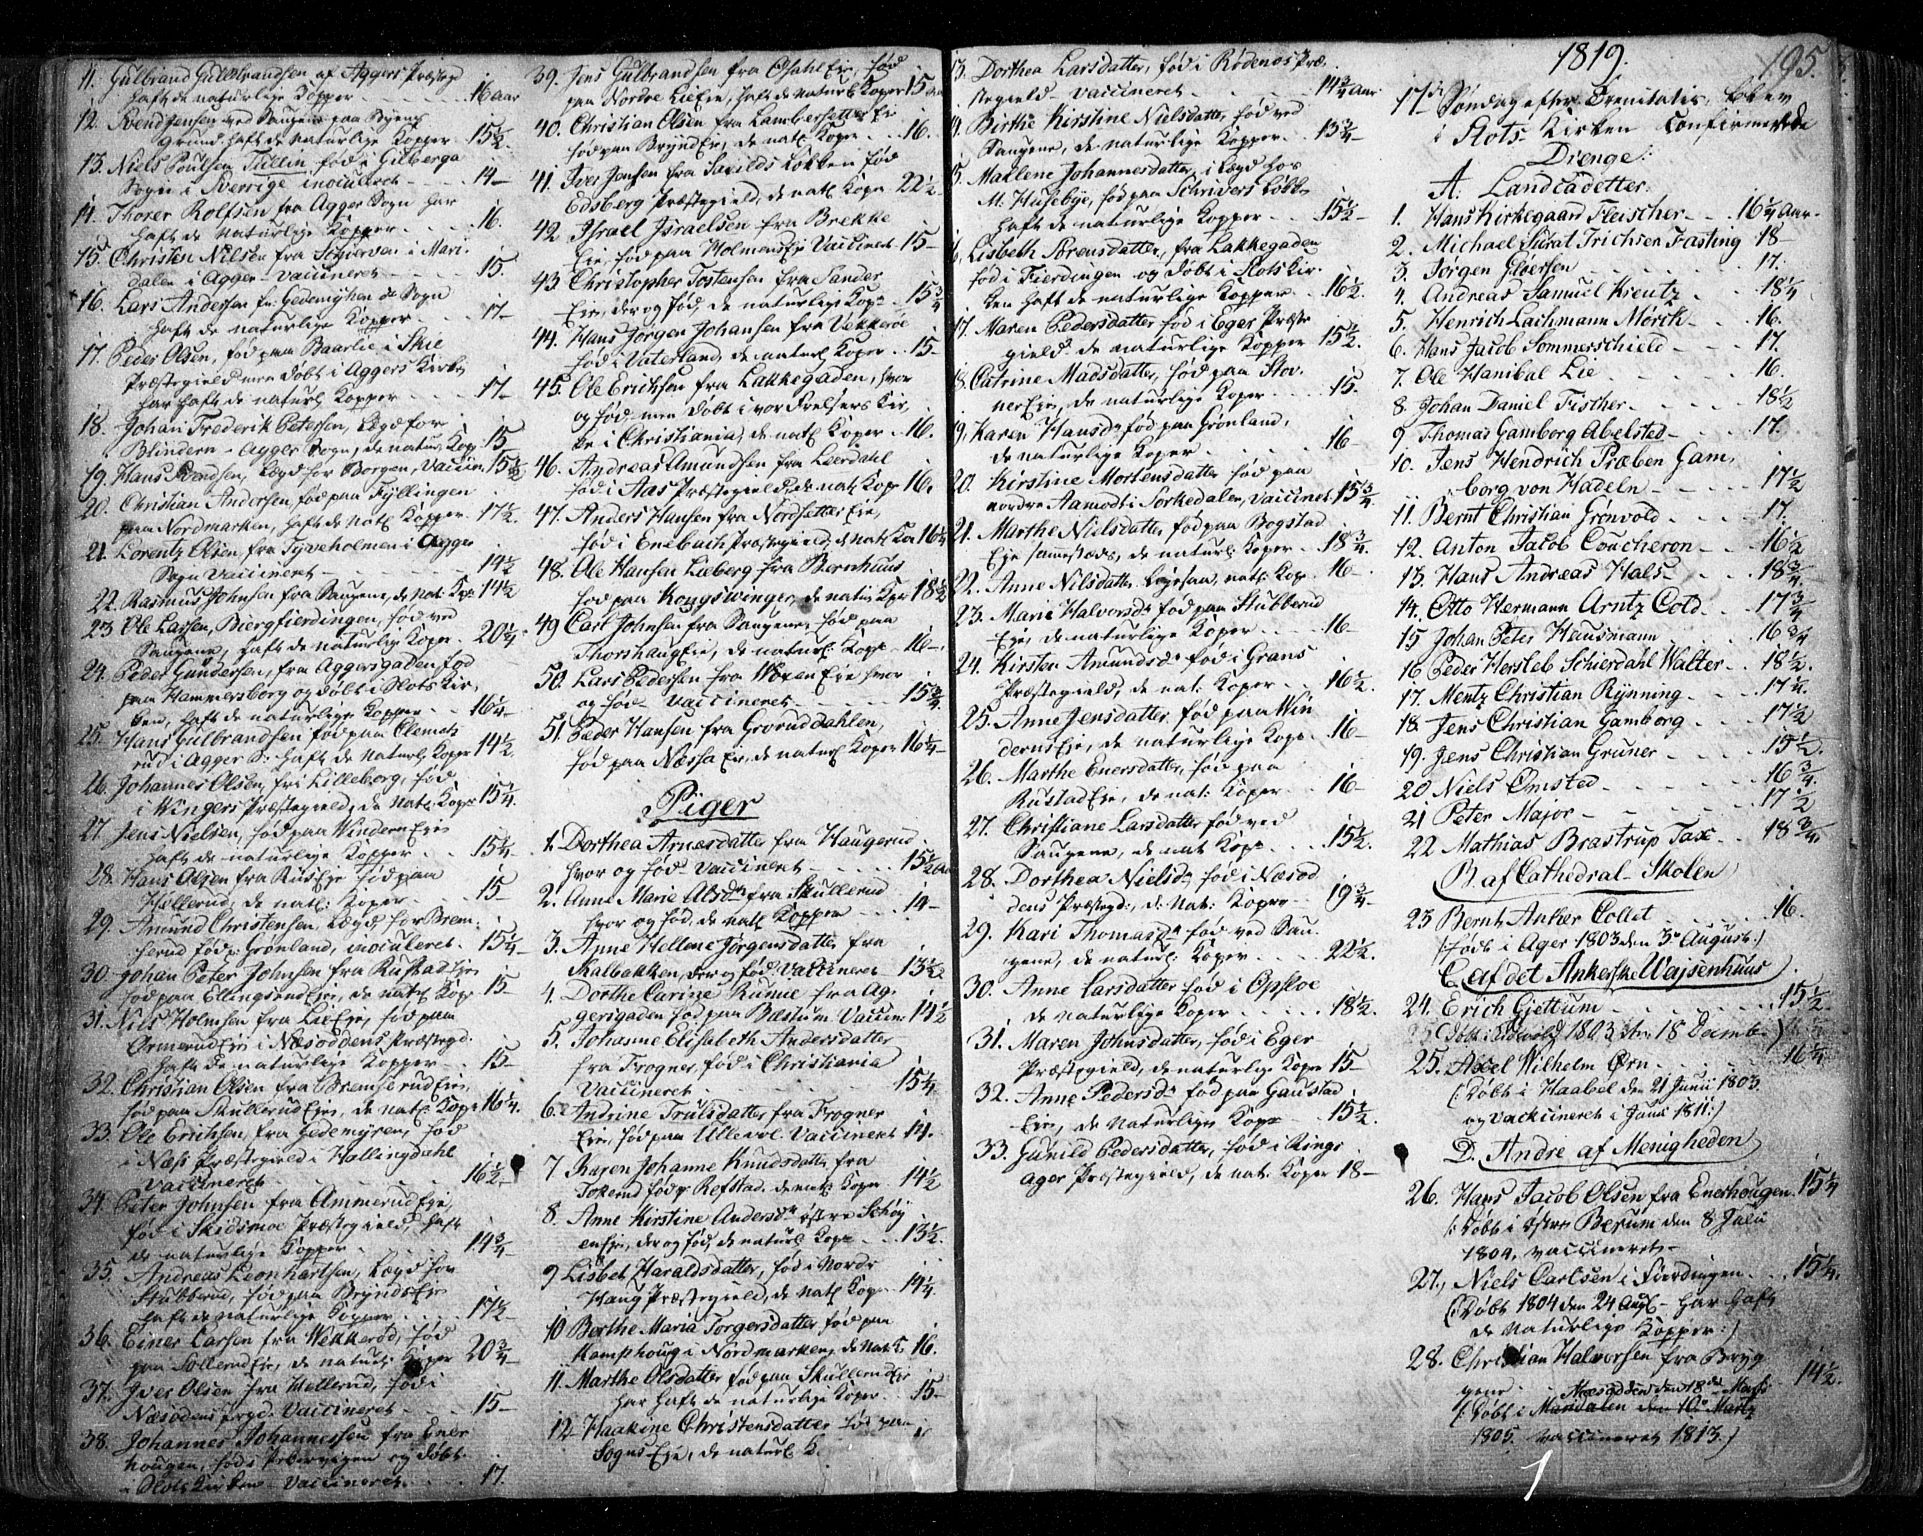 11. Gulbrand Gulbrandsen af Aggers Præstegd
haft de naturlige Kopper 16 aar
12. Svend Jensen ved Saugene paa
Grund haft de Naturlige Kopper 15½.
13. Niels Poulsen Tillin, fød i Gilberga
Sogn i Sverrige inoculeret 14
14. Thorer Rolfsen fra Agger Sogn har
haft de Naturlige Kopper 16.
15. Christen Nilsen fra i Mari
dalen i Agger vaccineret 15.
16. Lars Andersen fra Gedemyhren Sogn
haft de naturlige Kopper 17
17. Peder Olsen, fød paa Baarlie i Skie
Præstegield men døbt i Aggers Kirke
har haft de naturl. Kopper 17
18. Johan Frederik Petersen, Legd for
Blindern Agger Sogn, de natur. Kop. 15
19. Hans Svendsen, Legd for Borgen, Vaccin. 15½
20. Christian Andersen, fød paa Fyllingen
paa Nordmarken, haft de Natl Kopper 17½.
21. Lorentz Olsen fra Tyveholmen i Agger
Sogn Vaccineret 14½
22. Rasmus Johnsen fra Saugene, de Nat. Kop. 14½
23 Ole Larsen, Biergfierdingen, fød ved
Saugene, haft de naturlig Kopr. 20¼
24. Peder Gundersen, fra Aggersgaden fød
paa Hammersborg og døbt i Slots Kir,
ken, haft de naturlige Kopper 16¼
25. Hans Gulbrandsen fød paa Clemets
rud i Agger S. haft de Naturl. Koper 14½
26. Johannes Olsen, fri Lilleborg, fød
i Wingers Præstegield, de nat. Koper 15¼
27. Jens Nielsen, fød paa Windern Eje
haft de naturlige Kopper 15¼
28. Hans Olsen fra Eje fød paa
Hellerud, de natl. Koper 15
29. Amund Christensen, Legd for Brem,
serud fød p. Grønland, inoculeret 15¼
30. Johan Peter Johnsen fra Rustad Eje
fød paa Ellingsrud Eje, de natl Kopr 15
31. Niels Holmsen fra Lie Eje, fød paa
Ormerud Eje i Næsoddens Præstegd.
haft de naturlige Kopper 15
32. Christian Olsen fra Bremserud Eje
fød paa Skullerud Eje, de natl. Kopr 16¼.
33. Ole Erichsen, fra Gedemyren, fød
i Næss Præstegield i Hallingdahl
vaccineret 16½
34. Peter Johnsen fra Ammerud Eje,
fød i Skidsmoe Præstegield, haft
de naturlige Kopper 14¾
35. Andreas Leonhartsen, Legd for
Stubberud, fød paa Brynds Eje
haft de naturlige Kopper 17½
36. Einer Larsen fra Wækkerød, fød
paa Sollerud Eje, de naturl. Koper 20¾
37. Iver Olsen fra Hellerud, fød i
Næsoddens prgd. Vaccineret 15
38. Johannes Johannessen fra Ener
hougen, fød i og døbt
i Slots Kirken Vaccineret 17.
39. Jens Gulbrandsen fra Eje, fød
paa Nordre Lie Eje, haft de naturl. Kopr 15 aar
40. Christian Olsen fra Lambersetter Eje
fød paa Brynd Eje, de natl Kopr 16.
41. Iver Jensen fra Løkken fød
Edsberg Præstegield, de natl Kopr 22½
42 Israel Israelsen fra Brekke
Eje, fød paa Holmens Eje Vaccineret 15
43 Christopher Tostensen fra Sander
Eje, der og fød, de naturlige Kopr 15¾
44. Hans Jørgen Johansen fra Vekkerøe
fød i Vaterland, de naturl Koper 15
45. Ole Erichsen fra Lakkegaden, hvor
og fød men døbt i vor Frelsers Kir,
ke i Christiania, de natl Koper 16.
46. Andreas Amundsen fra Leerdahl
fød i Aas Præstegield, de natl Kopr 16.
47. Anders Hansen fra Nordsetter Eje,
fød i Enebach Præstegield, de nat. Kop. 16¼
48. Ole Hansen Lieberg fra Bernhuus
fød paa Kongswinger, de natur. Kopr 18½
49 Carl Johnsen fra Saugene, fød paa
Thorshaug Eje, de naturl. Kopr 16
50. Lars Pedersen fra Woxen Eje hvor
og fød Vaccineret 15¾
51. Peder Hansen fra Groruddahlen
fød paa Næssa Eje, de naturl Koper 16¼
Piger
1. Dorthea Arnesdatter fra Haugerud
hvor og fød Vaccineret 15½ aar
2. Anne Marie Olsdr. fra Skullerud
hvor og fød, de natl Kopper 14
3. Anne Hellene Jørgensdatter fra
Kalbakken, der og fød, Vaccineret 13½
4. Dorthe Carine Runne fra Ag,
gersgaden fød paa Bærum Vaccin. 14½
5. Johanne Elisabeth Andersdatter
fra Frogner, fød i Christiania
Vaccineret 15¼
6. Andrine Trulsdatter fra Frogner
Eje, fød paa Ullevol Vaccineret 14.
7 Karen Johanne Knudsdatter fra
Tokerud fød p. Refstad. de natl. Kopr 14½
8. Anne Kirstine Andersdr. østre Schøy
en Eje, der og fød, de naturl Kopr 13½.
9 Lisbet Haraldsdatter, fød i Nordre
Haug Præstegield, de Natl Kopr 14¼
10 Berthe Maria Torgersdatter fød paa
Kamphoug i Nordmarken, de Nat. K. 16.
11. Marthe Olsdatter fød paa Skullerud Eje
har haft de naturlige Koper 15
12 Haakine Christensdatter fød paa
Sogns Eje, de naturl K.
13. Dorthea Larsdatter, fød i Rødenes Præ,
stegield vaccineret 14¾ aar
14. Birthe Kirstine Nielsdatter fød ved
Saugene, de naturlige Kopper 13¾
15. Marlene Johannesdatter, i Legd hos
M. Husebye, fød paa Schrivers Løkk
haft de naturlige Kopper 15½
16. Lisbeth Sørensdatter, fra Lakkegaden
fød i Fierdingen og døbt i Slots Kir,
ken haft de naturlige Kopper 16½.
17. Maren Pedersdatter fød i Eger Præste
gield de naturlige Kopper 15½.
18. Catrine Madsdatter, fød paa Stov,
ner Eje, de naturlige Koper 15.
19. Karen Hansdr fød paa Grønland,
de naturlige Koper 16
20. Kirstine Mortensdatter fød paa
nordre Aamodt i Sørkedalen, Vaccinet 15¾
21. Marthe Nielsdatter, fød paa Bogstad
Eje sammesteds, de naturl Koper 18¾.
22. Anne Nilsdatter, natl. Kopr. 16
23. Marie Halvorsdr fød paa Stubberud
Eje, de naturlige Koper 16
24. Kirsten Amundsdr fød i Grans
Præstegield, de nat: Koper 16½.
25. Anne Jensdatter fød paa Win
derns Eje, de naturlige Kopr 16
26. Marthe Enersdatter, fød paa
Rustad Eje, de nat: Koper 16
27. Christiane Larsdatter fød ved
Saugene, de nat Kopr 15½.
28. Dorthea Nielsdr fød i Næsod
dens Præstegd., de Nat: Kopre 19¾
29. Kari Thomasdr fød ved Sau,
gene, de naturl: Koper 22½.
30. Anne Larsdatter fød i Opsloe
de naturlige Koper 18½.
31. Maren Johnsdatter, fød i Eger
Præstegield, de naturlige Kopr 15
32. Anne Pedersdr fød paa Gaustad
Eje, de naturlige Kopr 15½.
33. Gunild Pedersdatter, fød i Rings
ager Præstegield, de nat. Koper 18
1819. 195.
17de Søndag efter Trenitatis, bleve
i Slots Kirken Confirmerede
Drenge:
A. Landcadetter
1. Hans Kirkegaard Fleischer 16¼ Aar
2. Michael Sürat Irichsen Fasting 18
3. Jørgen Gløersen 17.
4. Andreas Samuel Kreutz 18¼
5. Henrich Lachmann Mørch 16.
6. Hans Jacob Sommerschield 17.
7. Ole Hanibal Lie 16.
8. Johan Daniel Fisther 18½
9 Thomas Gamborg Abelsted 17.
10. Jens Hendrich Præben Gam,
borg von Hadeln 17½
11. Bernt Christian Grønvold 17.
12. Anton Jacob Coucheron 16½
13. Hans Andreas Hals 18¾
14. Otto Hermann Arntz Cold 17¾
15 Johan Peter Hausmann 16¾
16 Peder Hersleb Schierdahl Walter 18½.
17. Mentz Christian Rynning 17¼.
18. Jens Christian Gamborg 17½
19. Jens Christian Gruner 15½.
20 Niels Ømsted 16¾
21 Peter Major 17½
22 Mathias Brastrup Tax 18¾
B. af Cathedral-Skolen
23 Bernt Anker Collet 16.
(: døbt i Ager 1803 den 3die August:)
C. af det Ankerske Wajsenhuus
24. Erich Gjettum 15½
døbt i 1803 den 18 Decemb.)
25. Axel Wilhelm Ørn 16¼
(: Døbt i Haabøl den 21 Junii 1803.
og vackcineret i Junii 1811:)
D. Andre af Menigheden
26. Hans Jacob Olsen fra Enerhougen 15¼
(: Døbt i østre Berum den 8 Julii
1804, vaccineret
27. Niels Carlsen i Fierdingen 15¼.
(: Døbt 1804 den 24 Augt. har haft
de Naturlige Kopper:)
28. Christian Halvorsen fra Bryg
gene Næsodden den 18de Marti 14½.
(: Døbt i Maridalen den 10de Martz
1805. vaccineret 1813.)
1